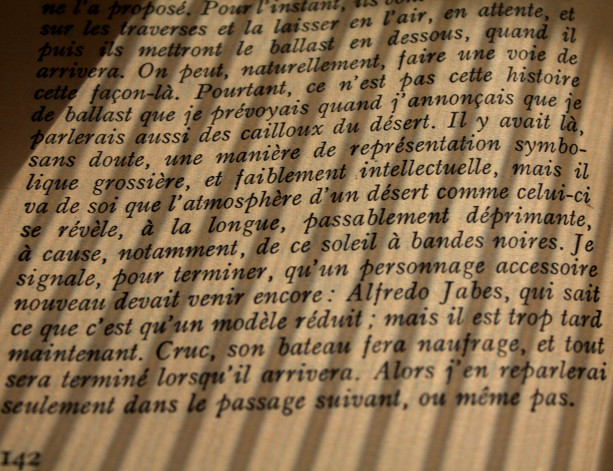 ne l'a proposé. Pour l'instant, ils vont
sur les traverses et la laisser en l'air, en attente, et
puis ils mettront le ballast en dessous, quand il
arrivera. On peut, naturellement, faire une voie de
cette façon-là. Pourtant, ce n'est pas cette histoire
de ballast que je prévoyais quand j'annonçais que je
parlerais aussi des cailloux du désert. Il y avait là,
sans doute, une manière de représentation symbo-
lique grossière, et faiblement intellectuelle, mais il
va de soi que l'atmosphère d'un désert comme celui-ci
se révèle, à la longue, passablement déprimante,
à cause, notamment, de ce soleil à bandes noires. Je
signale, pour terminer, qu'un personnage accessoire
nouveau devait venir encore : Alfredo Jabes, qui sait
ce que c'est qu'un modèle réduit ; mais il est trop tard
maintenant. Cruc, son bateau fera naufrage, et tout
sera terminé lorsqu'il arrivera. Alors j'en reparlerai
seulement dans le passage suivant, ou même pas.
142